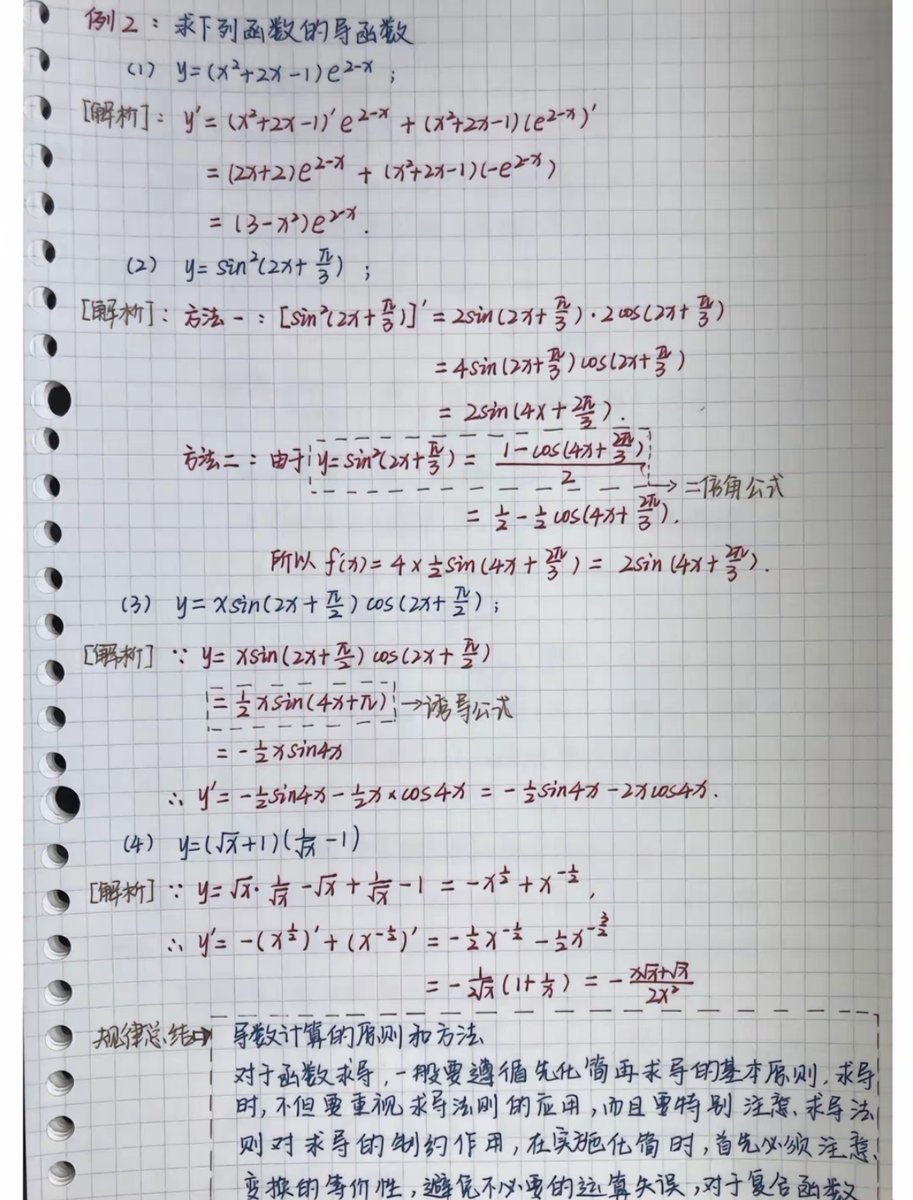 例2：求下列函数的导函数
(1) y=(x²+2x-1)e^{2-x}；
[解析]：y'=(x²+2x-1)'e^{2-x}+(x²+2x-1)(e^{2-x})'
=(2x+2)e^{2-x}+(x²+2x-1)(-e^{2-x})
=(3-x²)e^{2-x}.
(2) y=sin²(2x+π/3)；
[解析]：方法一：[sin²(2x+π/3)]'=2sin(2x+π/3)·2cos(2x+π/3)
=4sin(2x+π/3)cos(2x+π/3)
=2sin(4x+2π/3).
方法二：由于y=sin²(2x+π/3)=(1-cos(4x+2π/3))/2
→二倍角公式
=1/2-1/2cos(4x+2π/3).
所以f'(x)=4×1/2sin(4x+2π/3)=2sin(4x+2π/3).
(3) y=xsin(2x+π/2)cos(2x+π/2)；
[解析]∵y=xsin(2x+π/2)cos(2x+π/2)
=1/2xsin(4x+π)→诱导公式
=-1/2xsin4x
∴y'=-1/2sin4x-1/2x×cos4x=-1/2sin4x-2xcos4x.
(4) y=(√x+1)(1/√x-1)
[解析]∵y=√x·1/√x-√x+1/√x-1=-x^{1/2}+x^{-1/2},
∴y'=-(x^{1/2})'+(x^{-1/2})'=-1/2x^{-1/2}-1/2x^{-3/2}
=-1/(2√x)(1+1/x)=-(x√x+√x)/(2x²)
规律总结⇒导数计算的原则和方法
对于函数求导,一般要遵循先化简再求导的基本原则.求导
时,不但要重视求导法则的应用,而且要特别注意、求导法
则对求导的制约作用,在实施化简时,首先必须注意、
变换的等价性,避免不必要的运算失误,对于复合函数